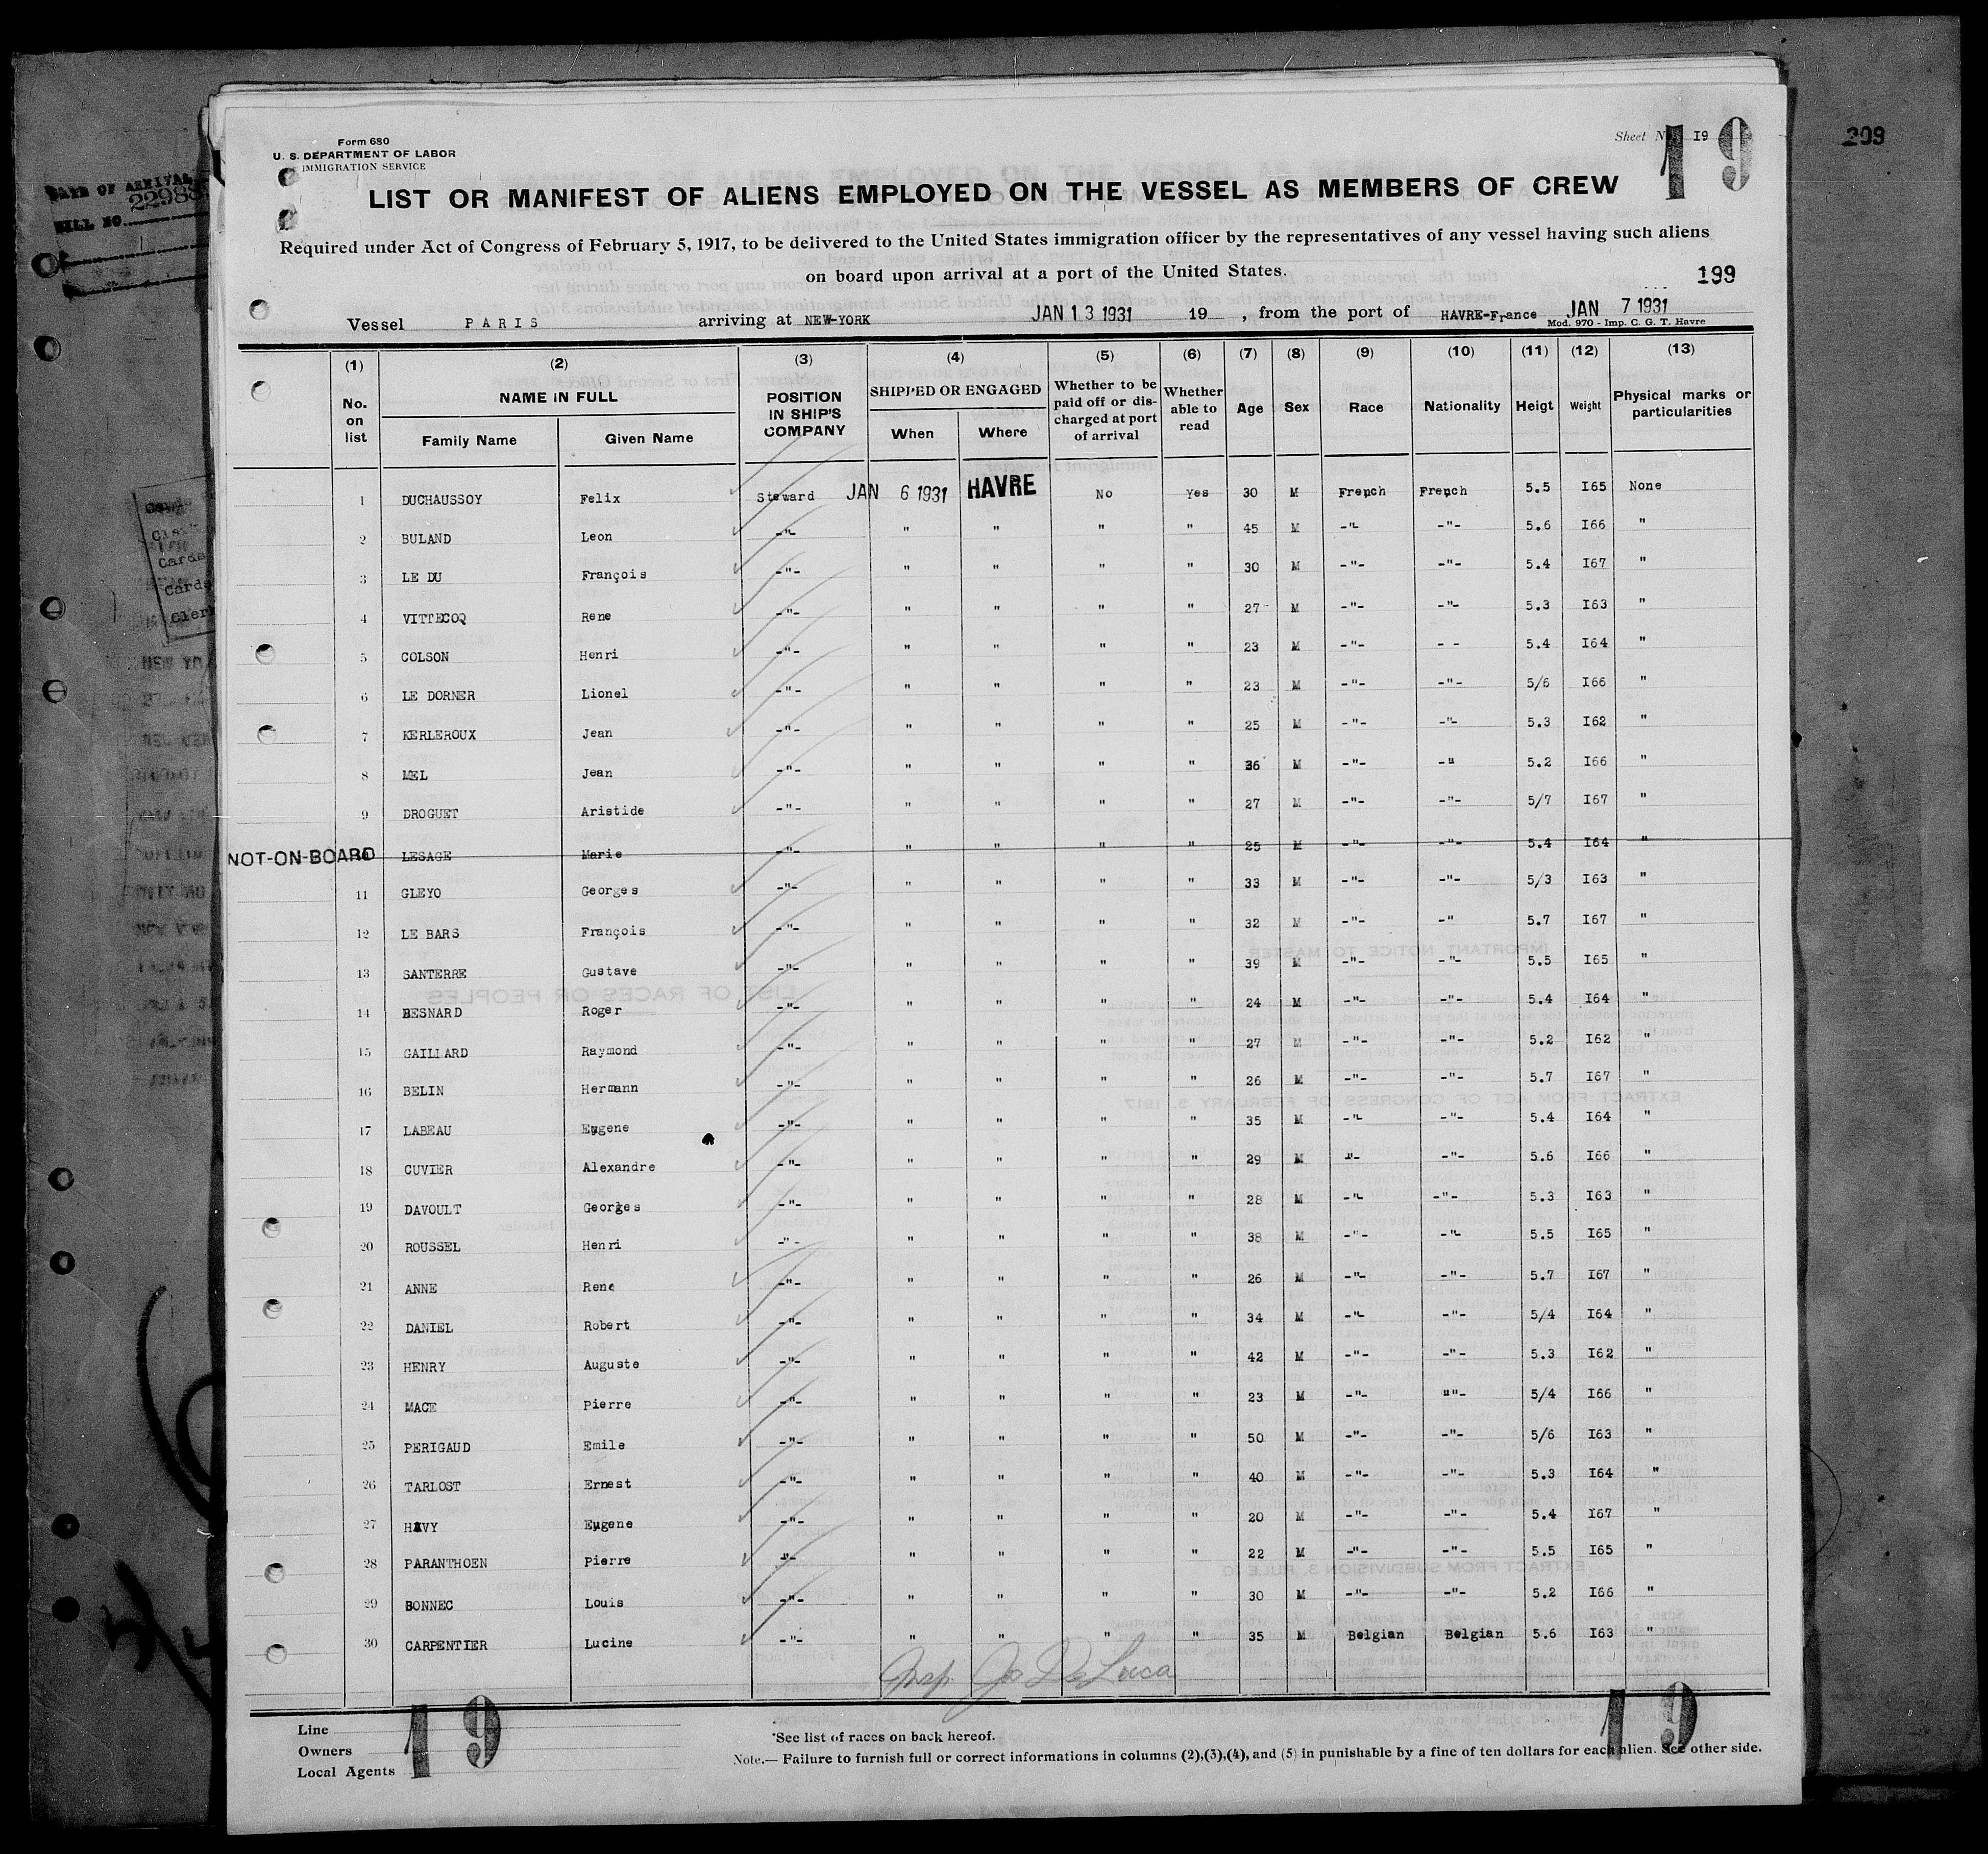 Form 680
U. S. DEPARTMENT OF LABOR
IMMIGRATION SERVICE
Sheet No. I9
19
209
DATE OF ARRIVAL
22988
BILL NO.
LIST OR MANIFEST OF ALIENS EMPLOYED ON THE VESSEL AS MEMBERS OF CREW
Required under Act of Congress of February 5, 1917, to be delivered to the United States immigration officer by the representatives of any vessel having such aliens
on board upon arrival at a port of the United States.
199
Vessel PARIS arriving at NEW-YORK JAN 13 1931 19 , from the port of HAVRE-France JAN 7 1931
Mod. 970 - Imp. C. G. T. Havre
(1) (2) (3) (4) (5) (6) (7) (8) (9) (10) (11) (12) (13)
No. on list NAME IN FULL Family Name Given Name POSITION IN SHIP'S COMPANY SHIPPED OR ENGAGED When Where Whether to be paid off or discharged at port of arrival Whether able to read Age Sex Race Nationality Heigt Weight Physical marks or particularities
1 DUCHAUSSOY Felix Steward JAN 6 1931 HAVRE No Yes 30 M French French 5.5 I65 None
2 BULAND Leon -"- " " " " 45 M -"- -"- 5.6 I66 "
3 LE DU François -"- " " " " 30 M -"- -"- 5.4 I67 "
4 VITTECOQ Rene -"- " " " " 27 M -"- -"- 5.3 I63 "
5 COLSON Henri -"- " " " " 23 M -"- - - 5.4 I64 "
6 LE DORNER Lionel -"- " " " " 23 M -"- -"- 5/6 I66 "
7 KERLEROUX Jean -"- " " " " 25 M -"- -"- 5.3 I62 "
8 MEL Jean -"- " " " " 36 M -"- -" 5.2 I66 "
9 DROGUET Aristide -"- " " " " 27 M -"- -"- 5/7 I67 "
NOT-ON-BOARD LESAGE Marie -"- " " " " 25 M -"- -"- 5.4 I64 "
11 GLEYO Georges -"- " " " " 33 M -"- -"- 5/3 I63 "
12 LE BARS François -"- " " " " 32 M -"- -" 5.7 I67 "
13 SANTERRE Gustave -"- " " " " 39 M -"- -"- 5.5 I65 "
14 BESNARD Roger -"- " " " " 24 M -"- -"- 5.4 I64 "
15 GAILLARD Raymond -"- " " " " 27 M -"- -"- 5.2 I62 "
16 BELIN Hermann -"- " " " " 26 M -"- -"- 5.7 I67 "
17 LABEAU Eugene -"- " " " " 35 M -"- -"- 5.4 I64 "
18 CUVIER Alexandre -"- " " " " 29 M "- -"- 5.6 I66 "
19 DAVOULT Georges -"- " " " " 28 M -"- -"- 5.3 I63 "
20 ROUSSEL Henri -"- " " " " 38 M -"- -"- 5.5 I65 "
21 ANNE Rene -"- " " " " 26 M -"- -"- 5.7 I67 "
22 DANIEL Robert -"- " " " " 34 M -"- -"- 5/4 I64 "
23 HENRY Auguste -"- " " " " 42 M -"- -"- 5.3 I62 "
24 MACE Pierre -"- " " " " 23 M -"- ""- 5/4 I66 "
25 PERIGAUD Emile -"- " " " " 50 M -"- -"- 5/6 I63 "
26 TARLOST Ernest -"- " " " " 40 M -"- -"- 5.3 I64 "
27 HAVY Eugene -"- " " " " 20 M -"- -"- 5.4 I67 "
28 PARANTHOEN Pierre -"- " " " " 22 M -"- -"- 5.5 I65 "
29 BONNEC Louis -"- " " " " 30 M -"- -"- 5.2 I66 "
30 CARPENTIER Lucine -"- " " " " 35 M Belgian Belgian 5.6 I63 "
Insp. Jos De Luca
Line
Owners
Local Agents
19
19
*See list of races on back hereof.
Note.— Failure to furnish full or correct informations in columns (2),(3),(4), and (5) in punishable by a fine of ten dollars for each alien. See other side.